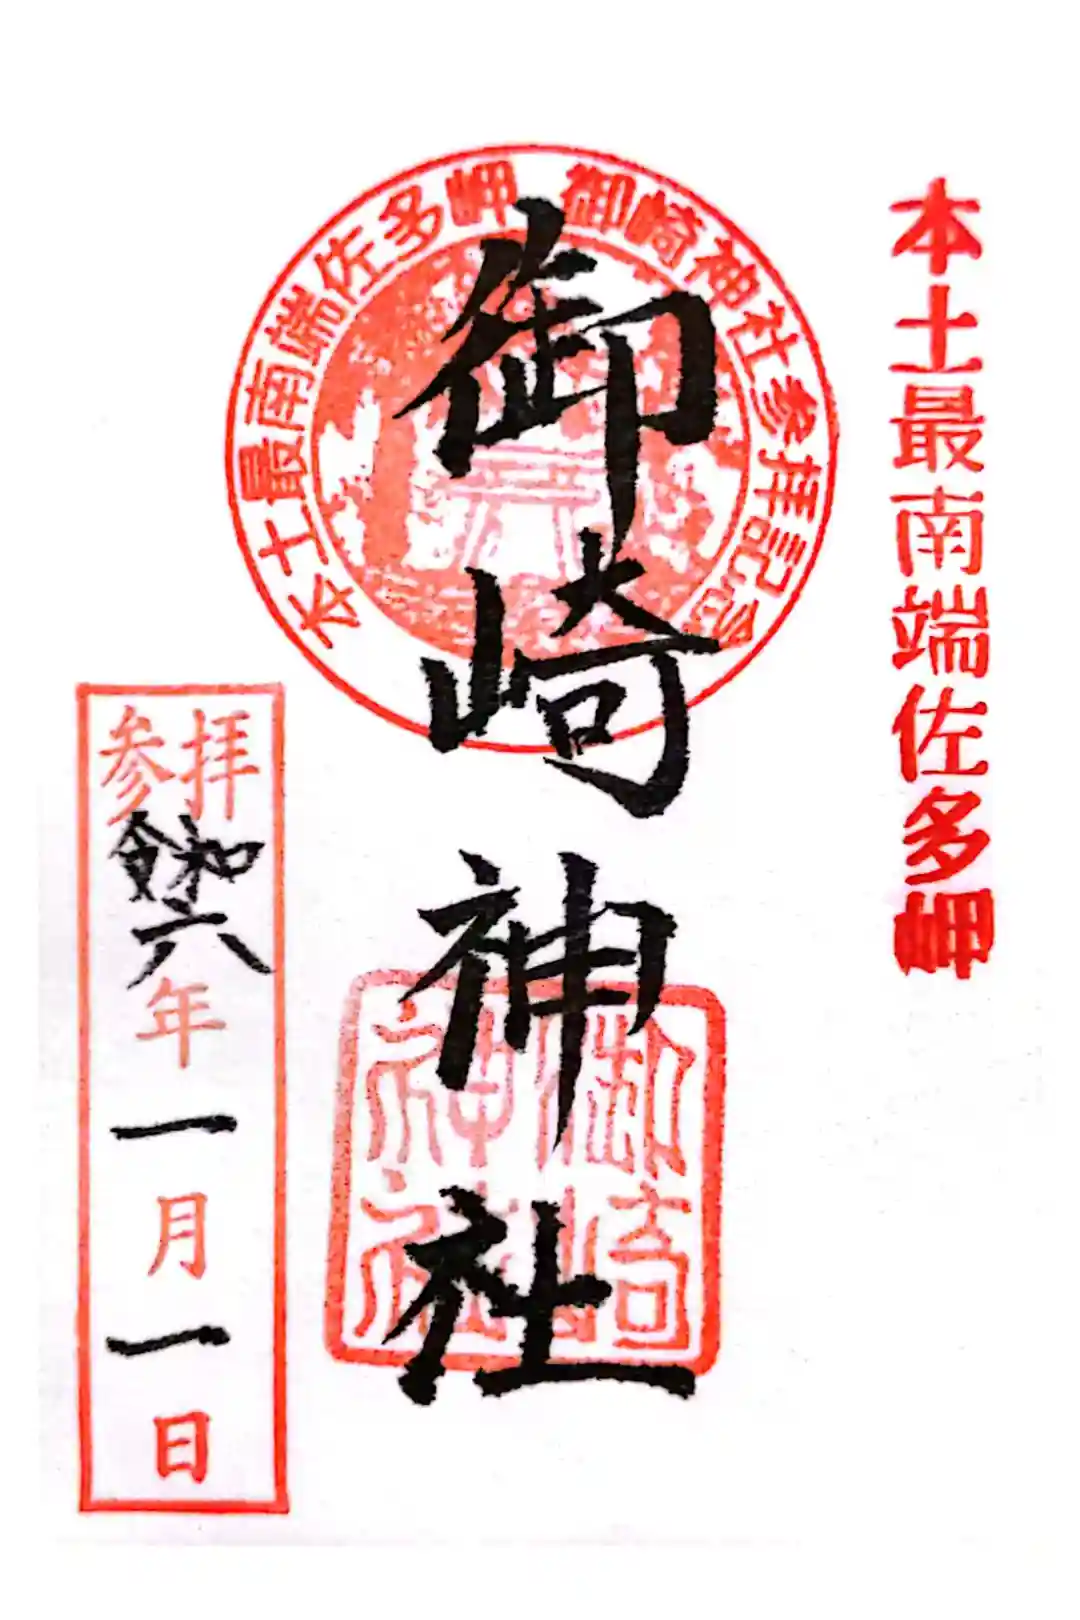 本土最南端佐多岬
本土最南端佐多岬 御崎神社参拝記念
御崎神社
御崎
神社
参拝
令和
六
年
一
月
一
日